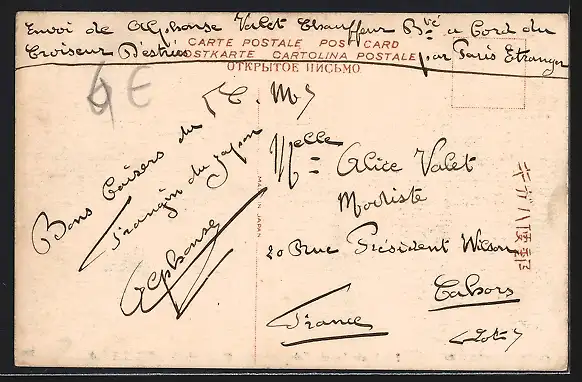 Envoi de Alphonse Valet Chauffeur Bvé a bord du
Croiseur D'estrées par Paris Etranger
CARTE POSTALE POST CARD
POSTKARTE CARTOLINA POSTALE
ОТКРЫТОЕ ПИСЬМО
6 €
(C. M)
Bons baisers du
frangin du japon
Alphonse
MADE IN JAPAN
Melle Alice Valet
Modiste
20 Rue Président Wilson
Cahors
(Lot)
France